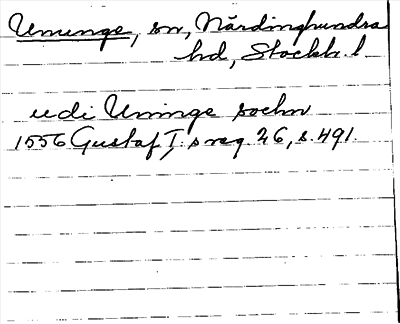 Ununge, sn, Närdinghundra
hd, Stockh. l
udi Uninge sochn
1556 Gustaf I,s reg. 26, s. 491.